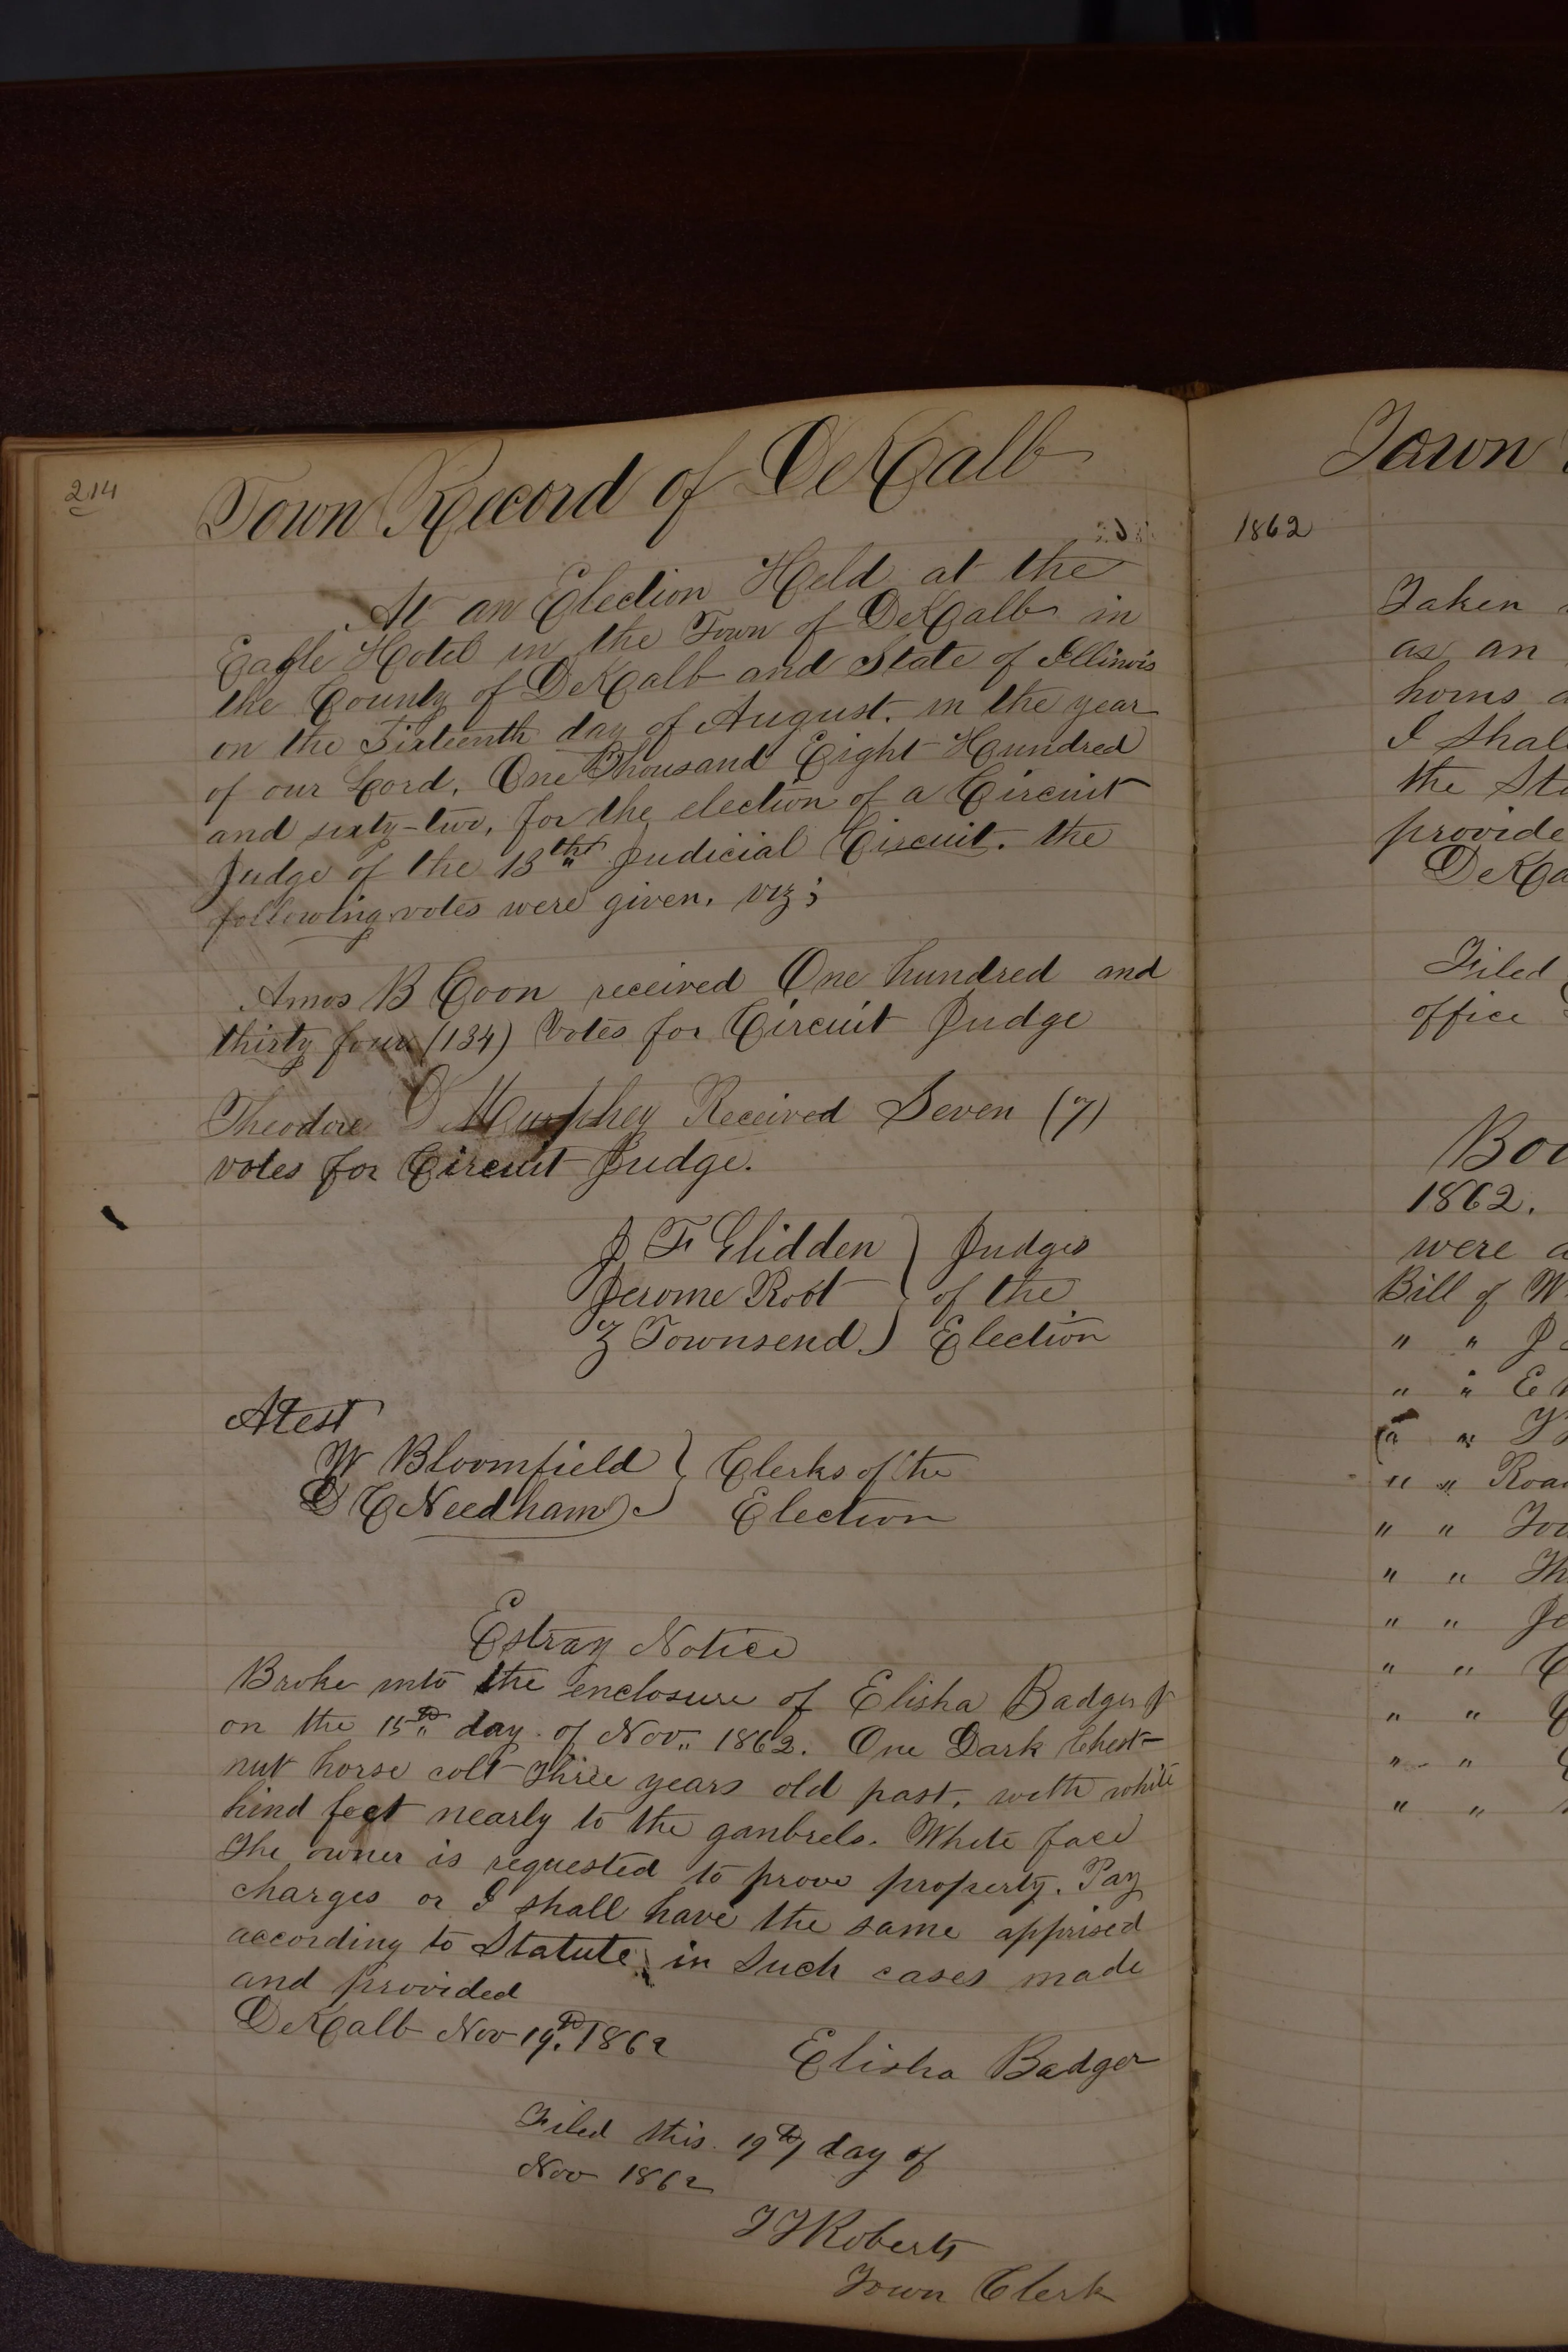 214
Town Record of DeKalb
At an Election Held at the
Eagle Hotel in the Town of DeKalb in
the County of DeKalb and State of Illinois
on the Sixteenth day of August. in the year
of our Lord, One Thousand Eight Hundred
and sixty-two, for the election of a Circuit
Judge of the 13th Judicial Circuit. the
following votes were given, viz;
Amos B Coon received One hundred and
thirty four (134) Votes for Circuit Judge
Theodore D Murphey Received Seven (7)
votes for Circuit Judge.
J F Glidden } Judges
Jerome Root } of the
Z Townsend } Election
Atest
W Bloomfield } Clerks of the
D C Needham } Election
Estray Notice
Broke into the enclosure of Elisha Badger Jr
on the 15th day of Nov. 1862. One Dark Chest-
nut horse colt Three years old past, with white
hind feet nearly to the ganbrels. White face
The owner is requested to prove property. Pay
charges or I shall have the same apprised
according to Statute in Such cases made
and provided
DeKalb Nov 19th 1862
Elisha Badger
Filed this 19th day of
Nov 1862
Roberts
Town Clerk
Town
1862
Taken
as an
horns
I shall
the
provide
Filed
office
1862.
were
Bill of W
" " J
" " E
" "
" "
" "
" "
" "
" "
" "
" "
" "